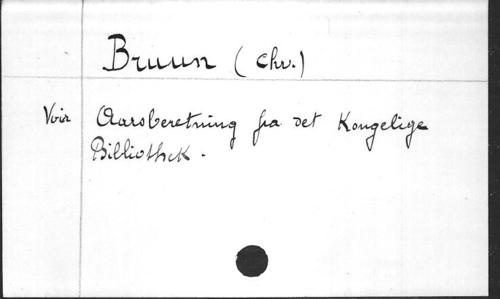 Bruun (Chr.)
Voir Aarsberetning fra det Kongelige
Bibliothek.